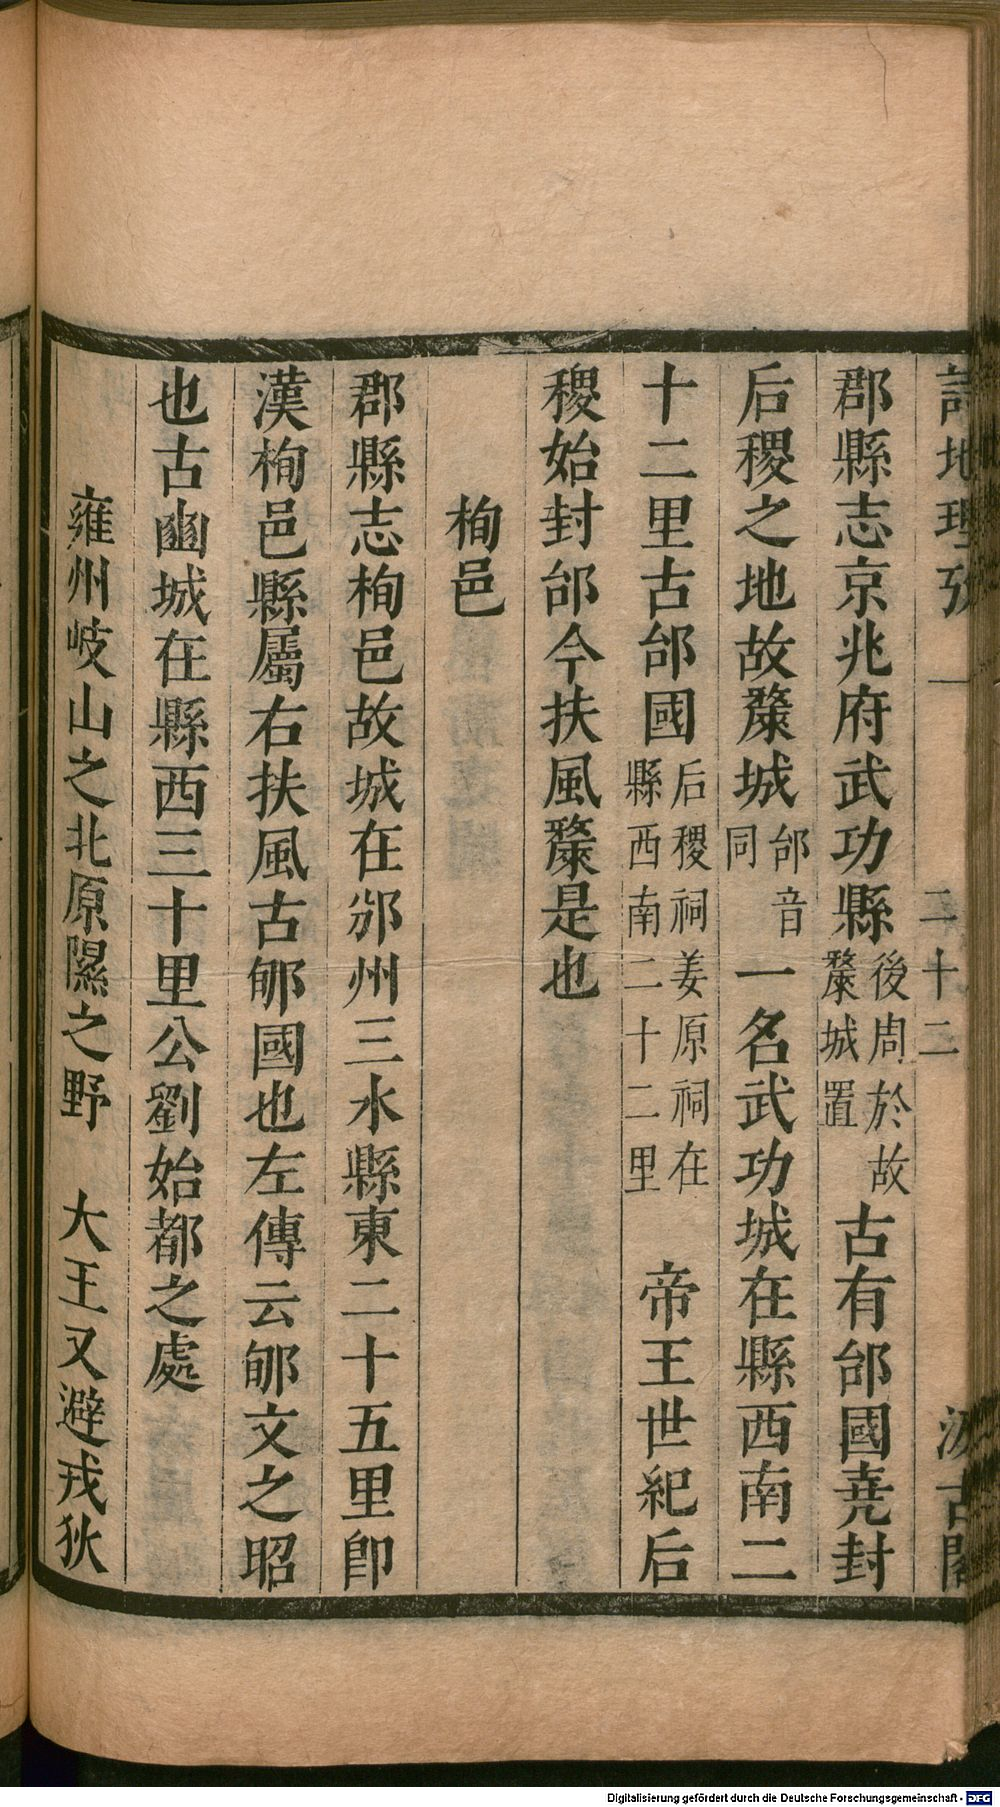 詩地理攷 一 二十二 汲古閣
郡縣志京兆府武功縣後周於故斄城置古有邰國堯封
后稷之地故斄城邰音同一名武功城在縣西南二
十二里古邰國后稷祠姜原祠在縣西南二十二里 帝王世紀后
稷始封邰今扶風斄是也
栒邑
郡縣志栒邑故城在邠州三水縣東二十五里卽
漢栒邑縣屬右扶風古郇國也左傳云郇文之昭
也古豳城在縣西三十里公劉始都之處
雍州岐山之北原隰之野 大王又避戎狄
Digitalisierung gefördert durch die Deutsche Forschungsgemeinschaft - DFG